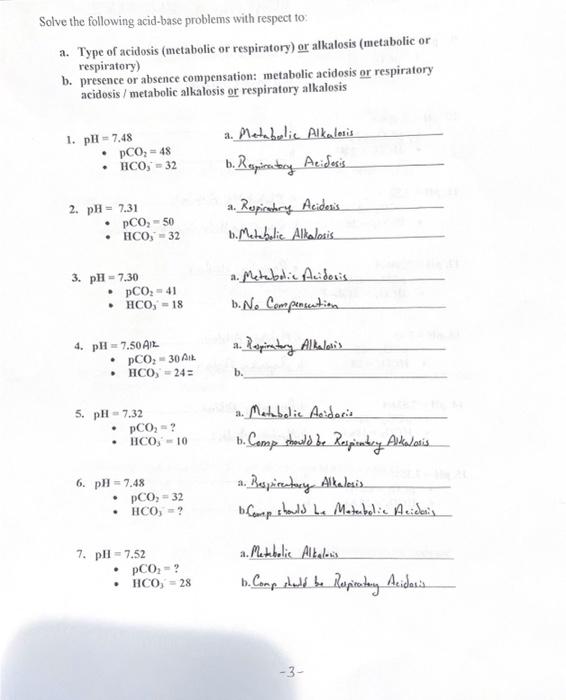 Solve the following acid-base problems with respect to:
a. Type of acidosis (metabolic or respiratory) or alkalosis (metabolic or
respiratory)
b. presence or absence compensation: metabolic acidosis or respiratory
acidosis / metabolic alkalosis or respiratory alkalosis
1. pH = 7.48 a. Metabolic Alkalosis
• pCO₂ = 48
• HCO₃⁻ = 32 b. Respiratory Acidosis
2. pH = 7.31 a. Respiratory Acidosis
• pCO₂ = 50
• HCO₃⁻ = 32 b. Metabolic Alkalosis
3. pH = 7.30 a. Metabolic Acidosis
• pCO₂ = 41
• HCO₃⁻ = 18 b. No Compensation
4. pH = 7.50 Alk a. Respiratory Alkalosis
• pCO₂ = 30 Alk
• HCO₃⁻ = 24 = b.
5. pH = 7.32 a. Metabolic Acidosis
• pCO₂ = ?
• HCO₃⁻ = 10 b. Comp should be Respiratory Alkalosis
6. pH = 7.48 a. Respiratory Alkalosis
• pCO₂ = 32
• HCO₃⁻ = ? b. Comp should be Metabolic Acidosis
7. pH = 7.52 a. Metabolic Alkalosis
• pCO₂ = ?
• HCO₃⁻ = 28 b. Comp should be Respiratory Acidosis
-3-